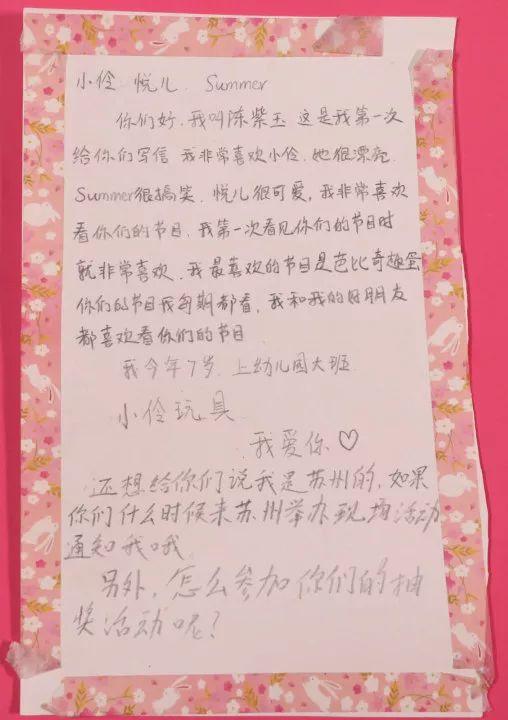 小伶 悦儿 Summer
你们好,我叫陈紫玉 这是我第一次
给你们写信 我非常喜欢小伶,她很漂亮,
Summer很搞笑,悦儿很可爱,我非常喜欢
看你们的节目,我第一次看见你们的节目时
就非常喜欢,我最喜欢的节目是芭比奇趣蛋
你们的节目我每期都看,我和我的好朋友
都喜欢看你们的节目
我今年7岁,上幼儿园大班
小伶玩具
我爱你♡
还想给你们说我是苏州的,如果
你们什么时候来苏州举办现场活动
通知我哦
另外,怎么参加你们的抽
奖活动呢?